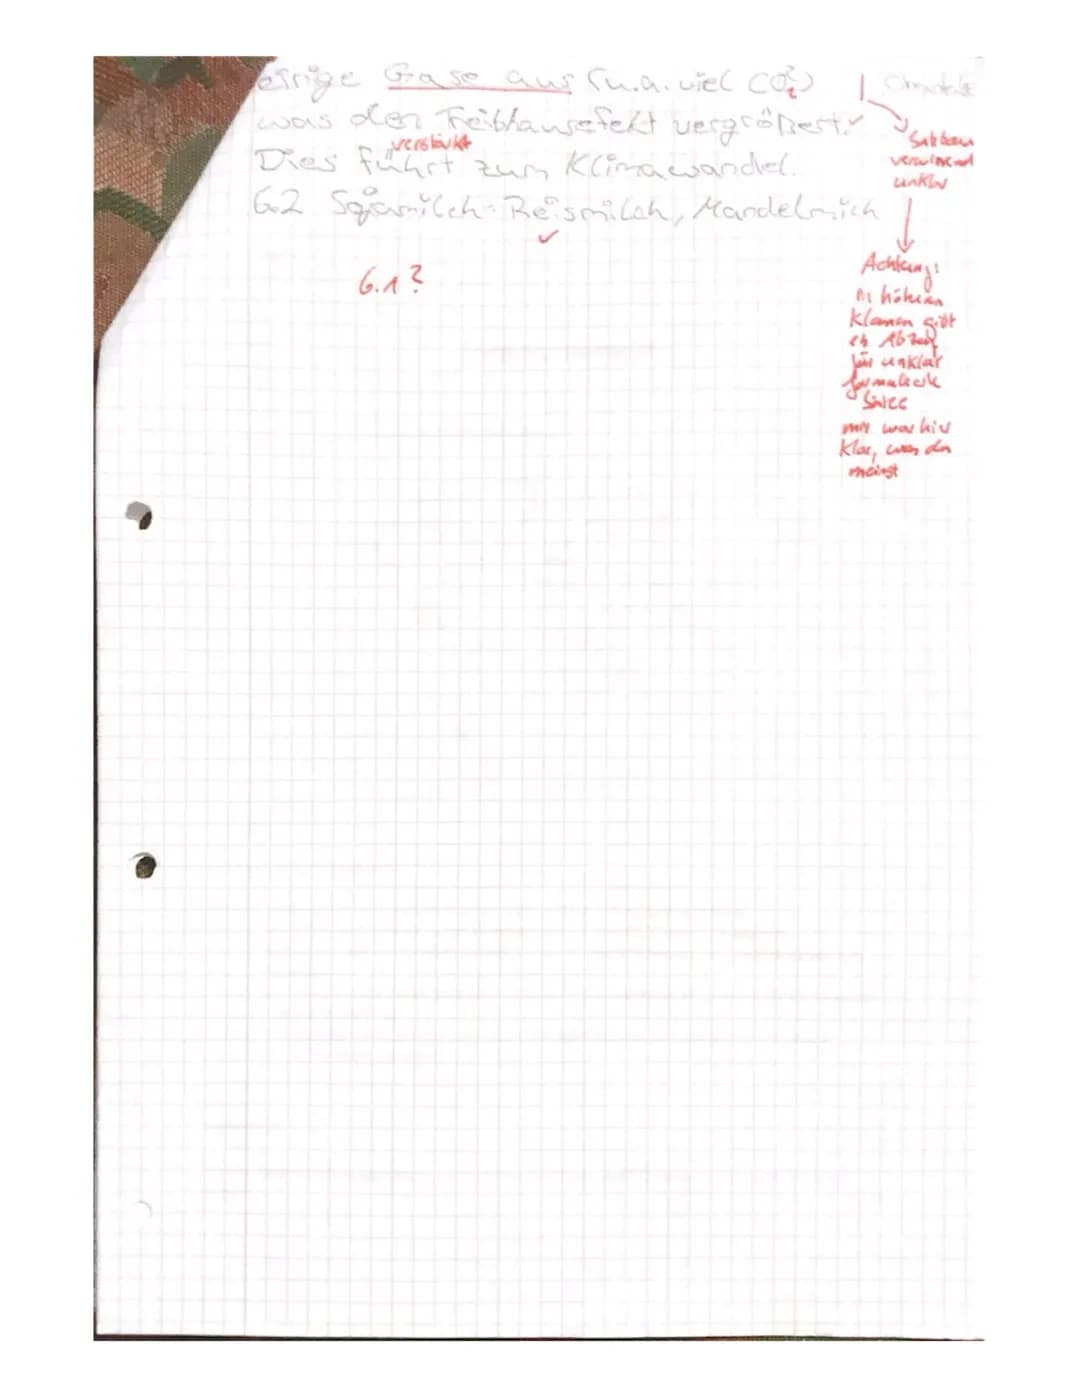 einige Gase aus (u.a. viel CO2)
was den Treibhausefekt vergrößert. ✓
verstärkt
Dies führt zum Klimawandel.
6.2 Sojamilch, Reismilch, Mandelmich
✓
6.1?
Satzbau
verwirrend
unklar
Achtung:
in höheren
Klassen gibt
es Abzug
für unklar
formulierte
Sätze
mir war hier
klar, was du
meinst